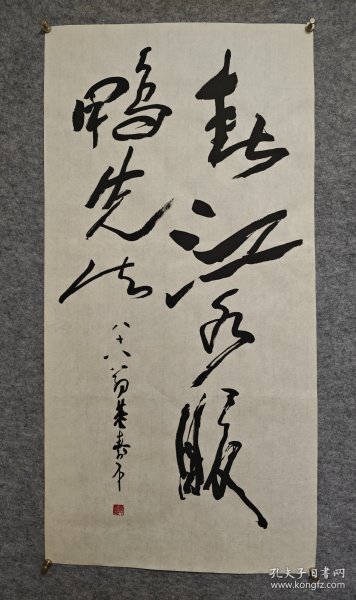 春江水暖
鸭先知
八十八翁
孔夫子旧书网
www.kongfz.com